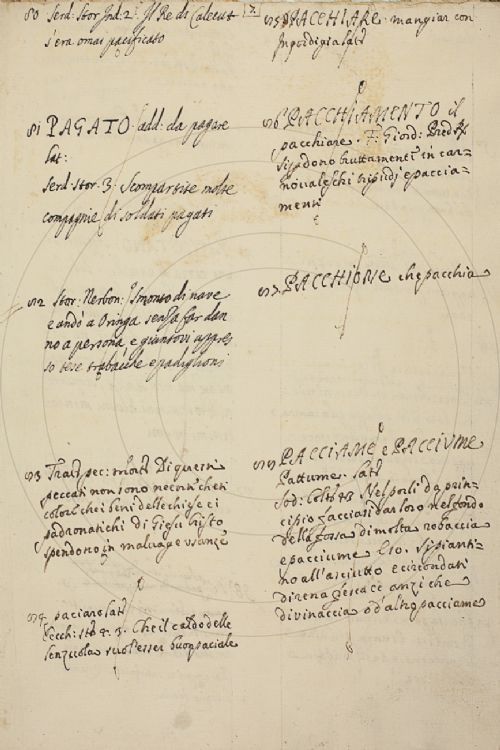 80 Serd: Stor Ind: 2: Il Re di Calecut
s'era omai pacificato
81 PAGATO add: da pagare
lat:
Serd: stor: 3: Scompartite molte
compagnie di soldati pagati
Stor: Nerbon: Smontò di nave
e andò a Oringa senza far dan
no a persona e giuntovi appres
so tese trabacche e padiglioni
Tratt pec: mort: Di questi
peccati non sono necti i cheri
coloro che i beni delle chiese ci
padronatichi di Giesu Cristo
spendono in malvage usanze
paciaro lat:
Vecch: Che il caldo delle
lenzuola suol esser buon paciale
PACCHIARE: mangiar con
Ingordigia lat:
PACCHIAMENTO il
pacchiare. F: Giord: Pred:
si godono bruttamenti in car-
novaleschi tripudj e pacchia-
menti
PACCHIONE che pacchia
PACCIAME e PACCIUME
Pattume. lat:
Sod: Colt: 48 Nel porli da prin-
cipio facciasi dar loro nel fondo
della fossa di molta robaccia
e pacciume E 50. Si pianti-
no all'asciutto e circondati
di rena fresca e anzi che
di vinaccia o d'altro pacciame